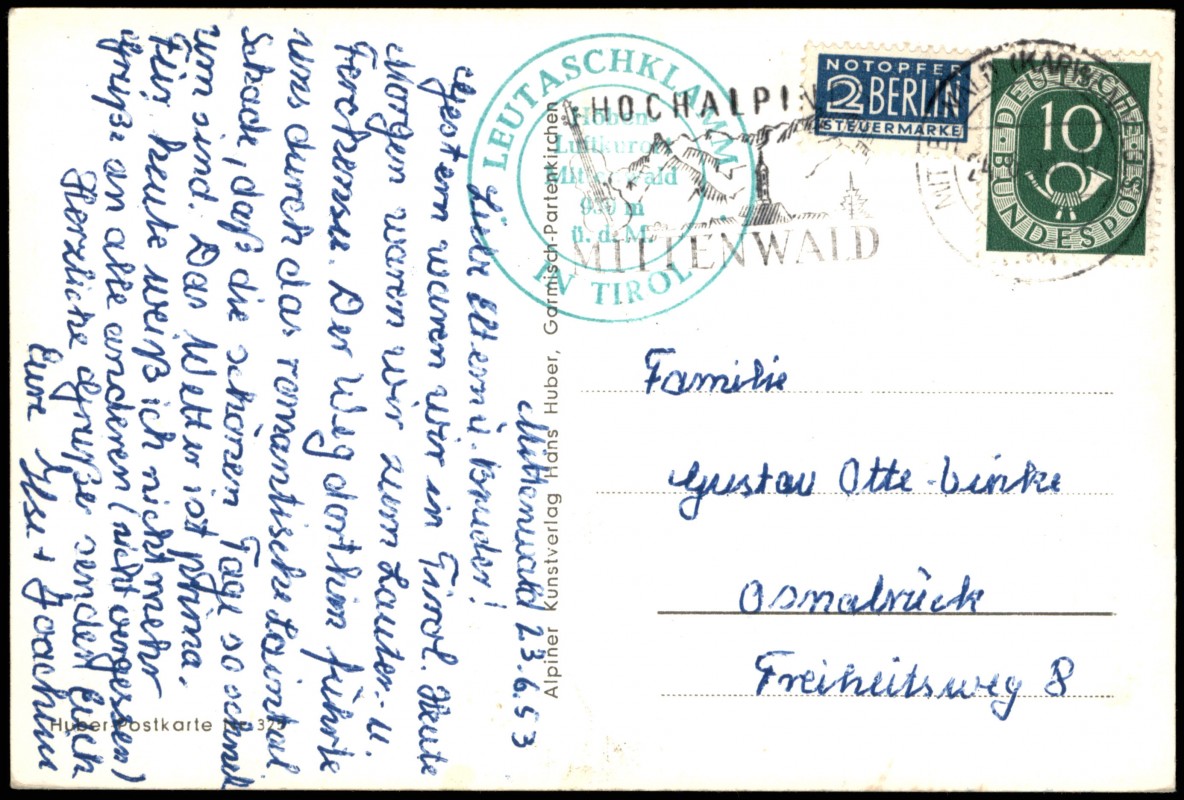 Mittenwald 23.6.53
Liebe Eltern u. Bruder!
Gestern waren wir in Tirol. Heute
Morgen waren wir zum Lauter- u.
Ferchensee. Der Weg dorthin führte
uns durch das romantische Laintal
Schade, daß die schönen Tage so schnell
um sind. Das Wetter ist prima.
Für heute weiß ich nicht mehr
Grüße an alle anderen (nicht vergessen)
Herzliche Grüße sendet Euch
Eure Ilse + Joachim
Huber-Postkarte Nr. 32
Alpiner Kunstverlag Hans Huber, Garmisch-Partenkirchen
LEUTASCHKLAMM
Höhen
Luftkurort
Mittenwald
930 m
ü. d. M.
IN TIROL
HOCHALPIN
MITTENWALD
NOTOPFER
2 BERLIN
STEUERMARKE
DEUTSCHE BUNDESPOST
10
MITTENWALD (KARWENDEL)
Familie
Gustav Otte-Linke
Osnabrück
Freiheitsweg 8